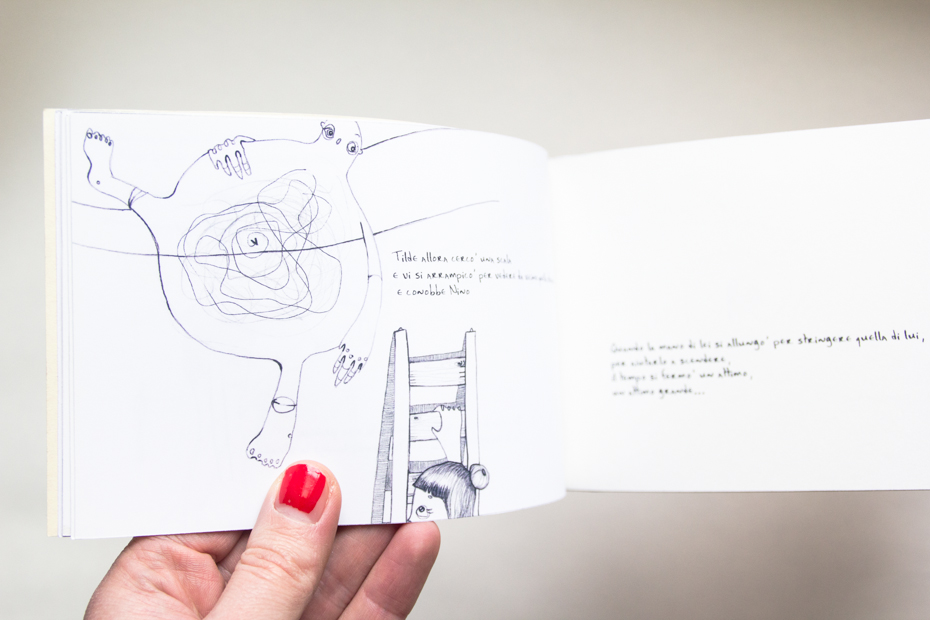 Tilde allora cercò una scala
e vi si arrampicò per vedere da
e conobbe Nino
Quando la mano di lei si allungò per stringere quella di lui,
per aiutarlo a scendere,
il tempo si fermò un attimo,
un attimo grande...